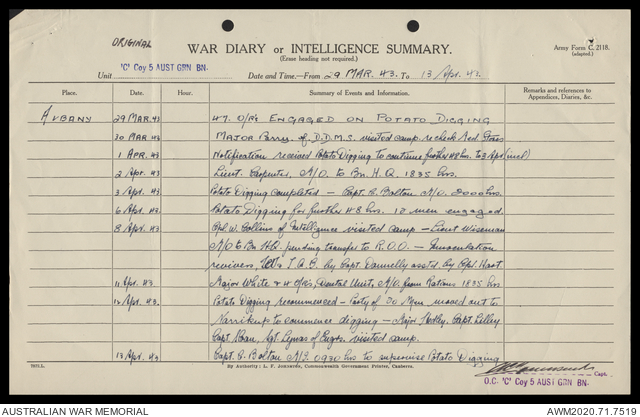 ORIGINAL
WAR DIARY or INTELLIGENCE SUMMARY.
(Erase heading not required).
Army Form C. 2118.
(adapted.)
Unit 'C' Coy 5 AUST GRN BN. Date and Time.—From 29 MAR. 43. To 13 Apr. 42
Place. Date. Hour. Summary of Events and Information. Remarks and references to Appendices, Diaries, &c.
ALBANY 29 MAR.43 47. O/Rs ENGAGED ON POTATO DIGGING
30 MAR.43 Major Parry of D.D.M.S. visited camp. recheck Red. Stores
1 APR. 43 Notification received Potato Digging to continue further 48 hrs. to 3 Apr (incl)
2 Apr. 43 Lieut. Carpenter, M/O. to Bn. H.Q. 1835 hrs.
3 Apr. 43 Potato Digging completed - Capt. R. Bolton M/O. 2000 hrs.
6 Apr. 43. Potato Digging for further 48 hrs. 12 men engaged.
8 Apr. 43. Cpl. W. Collins of Intelligence visited camp - Lieut Wiseman
M/O to Bn. H.Q. pending transfer to R.O.O. - Innoculation
T.A.B. by Capt. Donnelly asstd. by Cpl. Hart
11 Apr. 43. Major White & 4 O/Rs, Dental Unit, M/O. from Rations 1835 hrs
12 Apr. 43. Potato Digging recommenced - Party of 30 Men moved out to
Narrikup to commence digging - Major Hedley. Capt. Lilley
Capt. Sgt. Lynas of Engrs. visited camp.
13 Apr. 43 Capt. R. Bolton M/I. 0930 hrs to supervise Potato Digging
7072.L. By Authority: L. F. JOHNSTON, Commonwealth Government Printer, Canberra.
Capt.
O.C. 'C' COY 5 AUST GRN BN.
AUSTRALIAN WAR MEMORIAL
AWM2020.71.7519